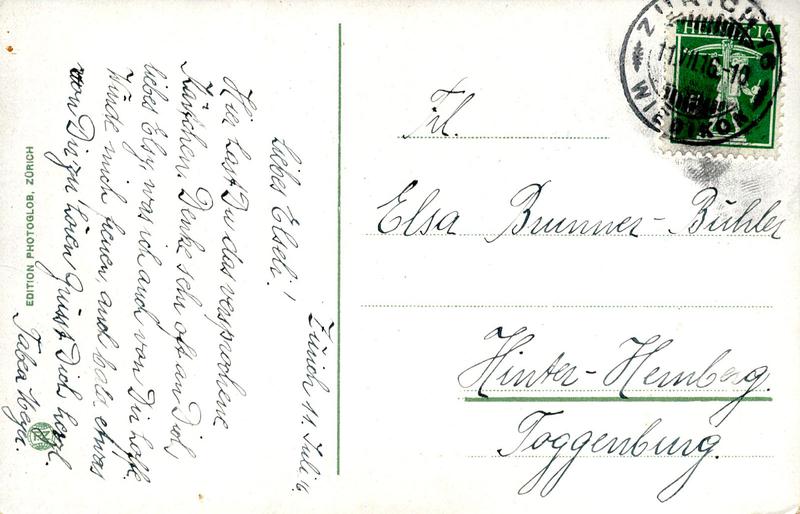 Zürich 11. Juli 16.
Liebes Elseli!
Hier hast Du das versprochene
Kärtchen. Denke sehr oft an Dich
liebes Elsy, was ich auch von Dir hoffe.
Würde mich freuen, auch bald etwas
von Dir zu hören. Grüsst Dich herzl.
EDITION PHOTOGLOB, ZÜRICH
Frl.
Elsa Brunner-Bühler
Hinter-Hemberg.
Toggenburg.
ZÜRICH 10
11.VII.16.-10
WIEDIKON
HELVETIA